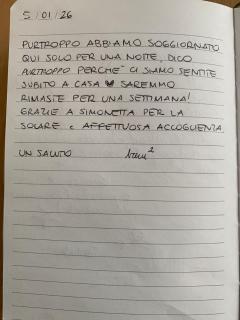 5/01/26
PURTROPPO ABBIAMO SOGGIORNATO
QUI SOLO PER UNA NOTTE, DICO
PURTROPPO PERCHÉ CI SIAMO SENTITE
SUBITO A CASA ♥ SAREMMO
RIMASTE PER UNA SETTIMANA!
GRAZIE A SIMONETTA PER LA
SOLARE e AFFETTUOSA ACCOGLIENZA
UN SALUTO